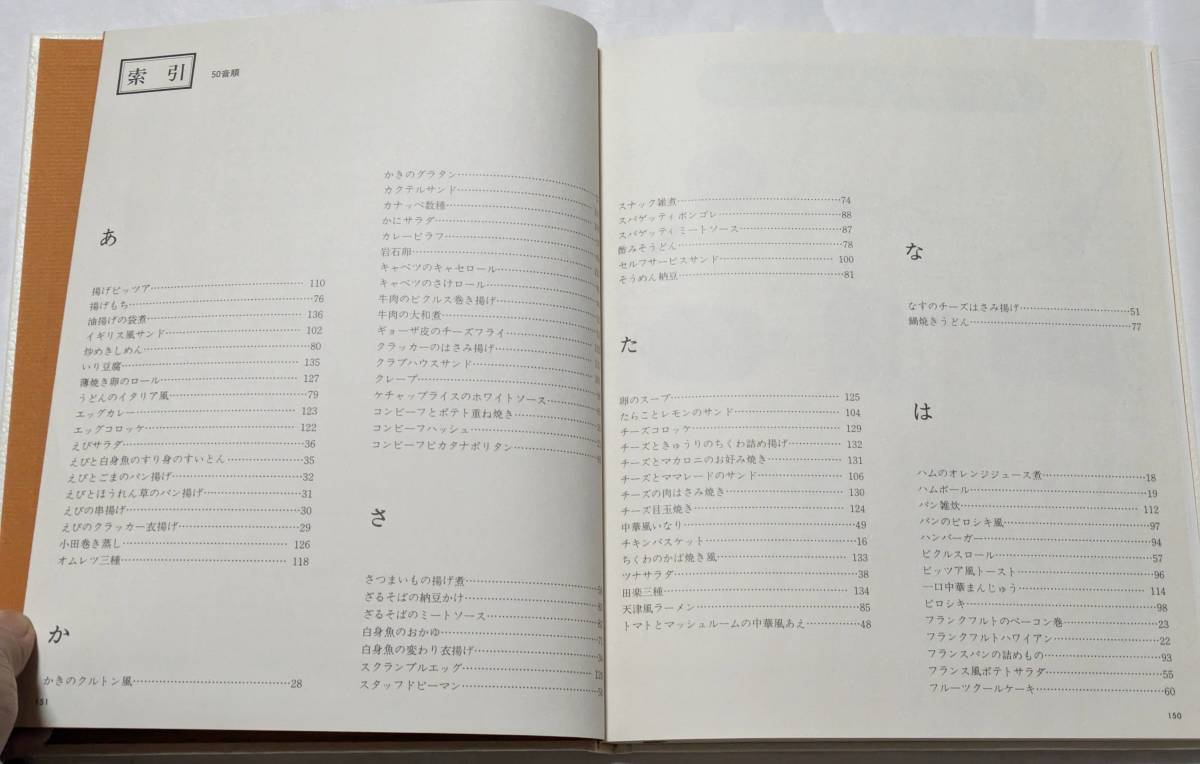 索引 50音順
あ
揚げピッツア 110
揚げもち 76
油揚げの袋煮 136
イギリス風サンド 102
炒めきしめん 80
いり豆腐 135
薄焼き卵のロール 127
うどんのイタリア風 79
エッグカレー 123
エッグコロッケ 122
えびサラダ 36
えびと白身魚のすり身のすいとん 35
えびとごまのパン揚げ 32
えびとほうれん草のパン揚げ 31
えびの串揚げ 30
えびのクラッカー衣揚げ 29
小田巻き蒸し 126
オムレツ三種 118
か
かきのクルトン風 28
かきのグラタン
カクテルサンド
カナッペ数種
かにサラダ
カレーピラフ
岩石卵
キャベツのキャセロール
キャベツのさけロール
牛肉のピクルス巻き揚げ
牛肉の大和煮
ギョーザ皮のチーズフライ
クラッカーのはさみ揚げ
クラブハウスサンド
クレープ
ケチャップライスのホワイトソース
コンビーフとポテト重ね焼き
コンビーフハッシュ
コンビーフピカタナポリタン
さ
さつまいもの揚げ煮
ざるそばの納豆かけ
ざるそばのミートソース
白身魚のおかゆ
白身魚の変わり衣揚げ
スクランブルエッグ
スタッフドピーマン
151
スナック雑煮 74
スパゲッティボンゴレ 88
スパゲッティミートソース 87
酢みそうどん 78
セルフサービスサンド 100
そうめん納豆 81
た
卵のスープ 125
たらことレモンのサンド 104
チーズコロッケ 129
チーズときゅうりのちくわ詰め揚げ 132
チーズとマカロニのお好み焼き 131
チーズとママレードのサンド 106
チーズの肉はさみ焼き 130
チーズ目玉焼き 124
中華風いなり 49
チキンバスケット 16
ちくわのかば焼き風 133
ツナサラダ 38
田楽三種 134
天津風ラーメン 85
トマトとマッシュルームの中華風あえ 48
な
なすのチーズはさみ揚げ 51
鍋焼きうどん 77
は
ハムのオレンジジュース煮 18
ハムボール 19
パン雑炊 112
パンのピロシキ風 97
ハンバーガー 94
ピクルスロール 57
ピッツア風トースト 96
一口中華まんじゅう 114
ピロシキ 98
フランクフルトのベーコン巻 23
フランクフルトハワイアン 22
フランスパンの詰めもの 93
フランス風ポテトサラダ 55
フルーツクールケーキ 60
150